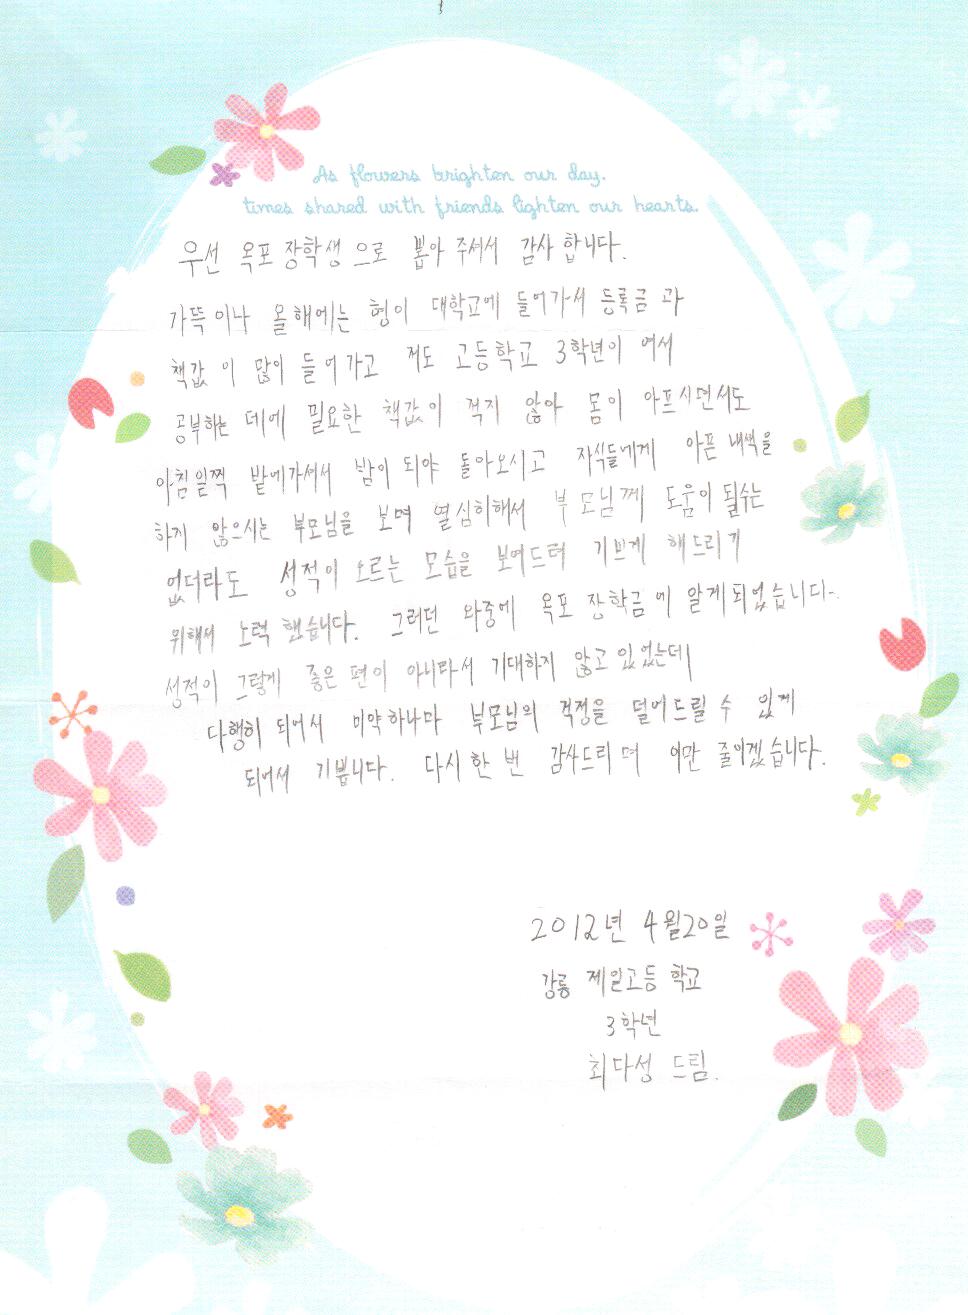 As flowers brighten our day.
times shared with friends lighten our hearts.
우선 옥포 장학생으로 뽑아 주셔서 감사합니다.
가뜩이나 올해에는 형이 대학교에 들어가서 등록금과
책값이 많이 들어가고 저도 고등학교 3학년이 여서
공부하는 데에 필요한 책값이 적지 않아 몸이 아프시면서도
아침일찍 밭에가셔서 밤이 되야 돌아오시고 자식들에게 아픈 내색을
하지 않으시는 부모님을 보며 열심히해서 부모님께 도움이 될수는
없더라도 성적이 오르는 모습을 보여드려 기쁘게 해드리기
위해서 노력했습니다. 그러던 와중에 옥포 장학금에 알게되었습니다.
성적이 그렇게 좋은 편이 아니라서 기대하지 않고 있었는데
다행히 되어서 미약하나마 부모님의 걱정을 덜어드릴 수 있게
되어서 기쁩니다. 다시 한 번 감사드리며 이만 줄이겠습니다.
2012년 4월20일
강릉 제일고등학교
3학년
최다성 드림.